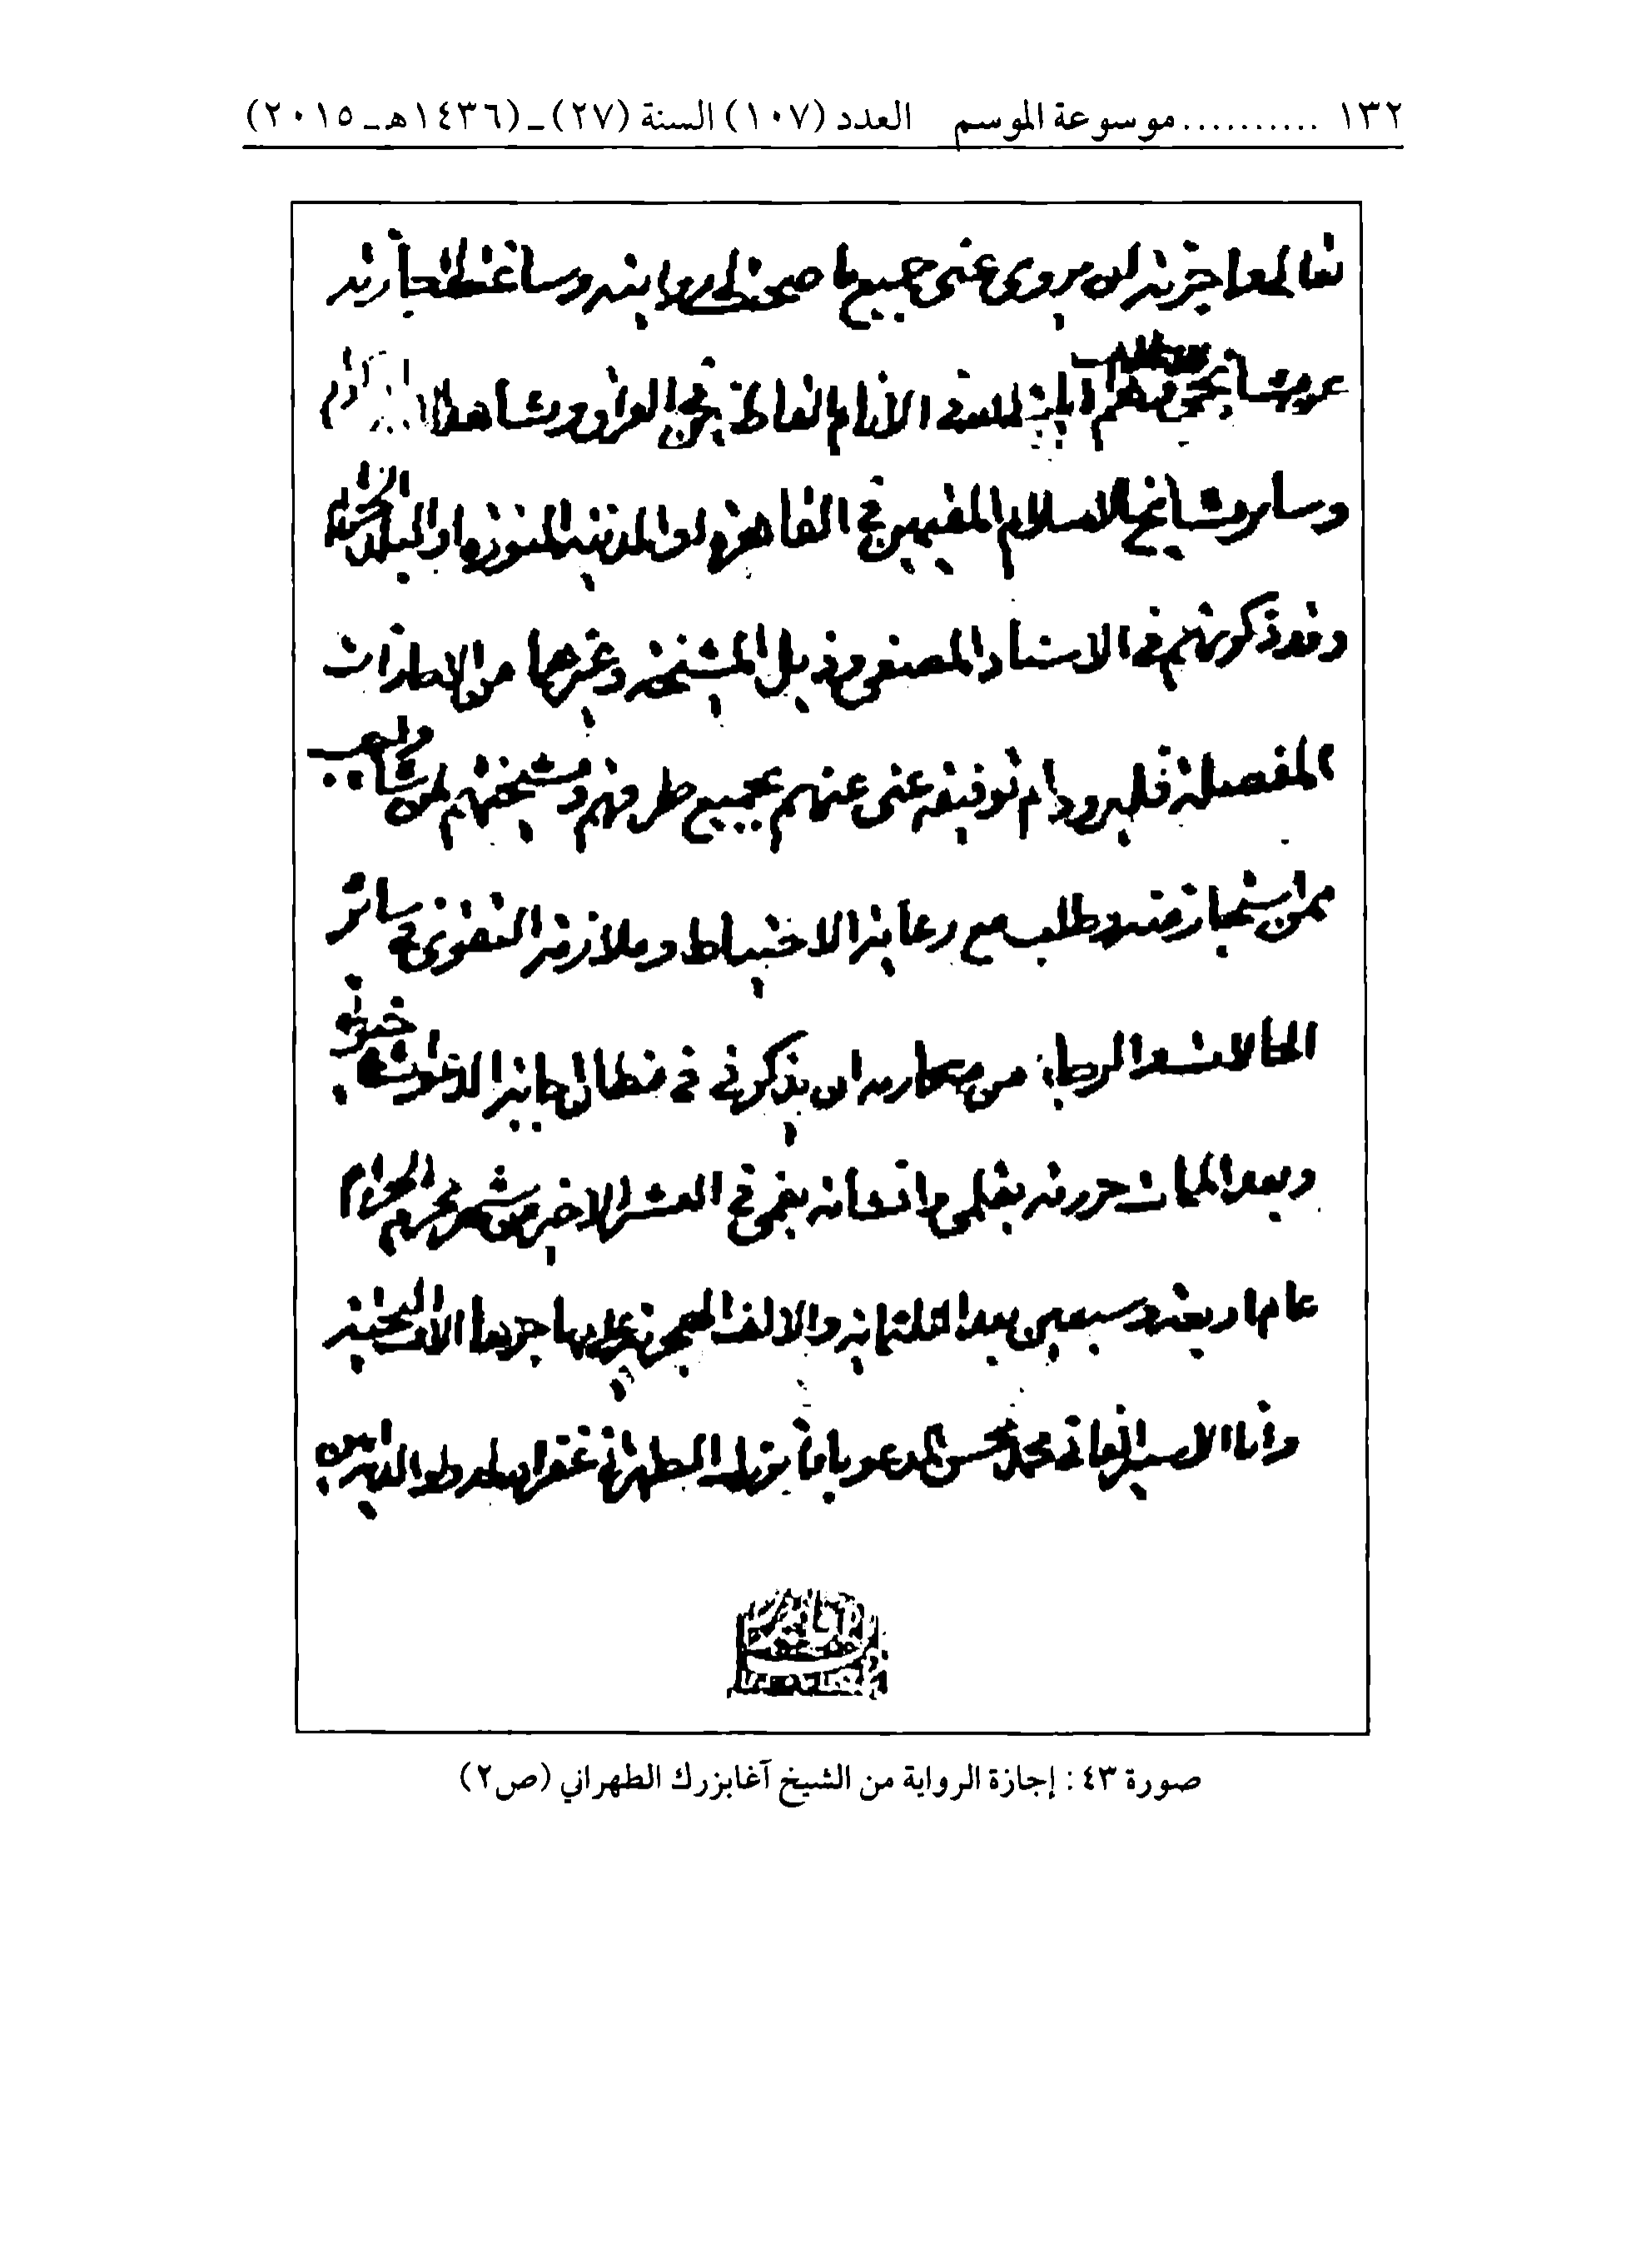 ١٣٢ .......... موسوعة الموسم العدد (١٠٧) السنة (٢٧) ـ (١٤٣٦هـ ـ ٢٠١٥)
تعالى واجزته ان يروى عنى جميع ما صحت لى روايته وساغت لى اجازته
عن مشايخى آية الله فى الانام القاطنين فى العراق ومشاهدها
وساير مشايخ الاسلام المقيمين فى القاهرة او المدينة المنورة او البلد الحرام
وقد ذكرتهم فى الاسناد المصفى وذيل المشيخة وغيرها من الاجازات
المفصلة فليرو دام توفيقه عنى عنهم بجميع طرقهم ومشيختهم لمن شاء واحب
ممن استجاز منه وطلب مع رعاية الاحتياط وملازمة التقوى فى سائر
الحالات والرجاء من مكارمه ان يذكرنى فى مظان اجابة الدعوات
وبعد الممات حررته بقلمى وافتتحانه بفمى فى العشر الاخير من شهر محرم الحرام
عام اربعة وسبعين بعد الثلثمائة والالف الهجرية على مهاجرها الاف التحية
وانا الاسير الفانى محمد محسن المدعو باقا بزرك الطهرانى غفر الله له ولوالديه آمين
صورة ٤٣ : إجازة الرواية من الشيخ آغابزرك الطهراني (ص٢)